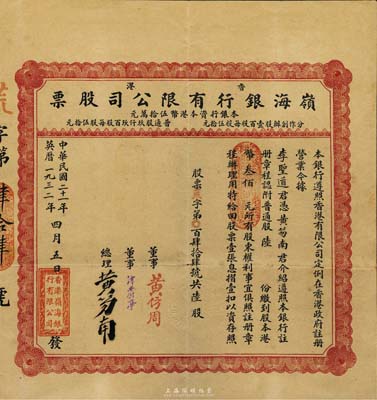 香港
嶺海銀行有限公司股票
本銀行資本港幣伍拾萬元
分作創辦股壹百股每股伍拾元
普通股玖仟玖百股每股伍拾元
本銀行遵照香港有限公司定例在香港政府註冊
營業合據
李聖道君憑黃笏南君介紹遵照本銀行註
冊章程認附普通股陸份繳到股本港
幣叁佰元所有股東權利事宜俱照註冊章
程辦理用特給回股票壹張息摺壹扣以資存照
股票 字第 百肆拾肆號共陸股
董事
董事
總理
黃笏南
中華民國二十一年
英曆一九三二年
四月五日
發
香港嶺海銀行有限公司
字第
肆拾肆
號